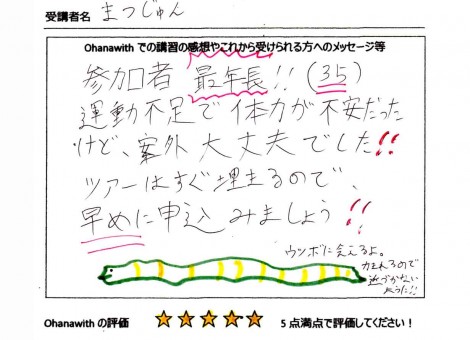 受講者名 まつじゅん
Ohanawith での講習の感想やこれから受けられる方へのメッセージ等
参加者 最年長!! (35)
運動不足で体力が不安だった
けど、案外大丈夫でした!!
ツアーはすぐ埋まるので、
早めに申込みましょう!!
ウンボに会えるよ。
カまれるので
近づかない
ように!!
Ohanawith の評価 ☆☆☆☆☆ 5 点満点で評価してください!